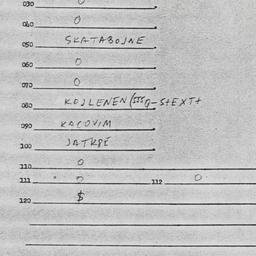 030 0
040 0
050 SKATABOJNE
060 0
070 0
080 KOJLENEN
090 KACOVIM
100 JATKPÉ
110 0
111 0 112 0
120 $